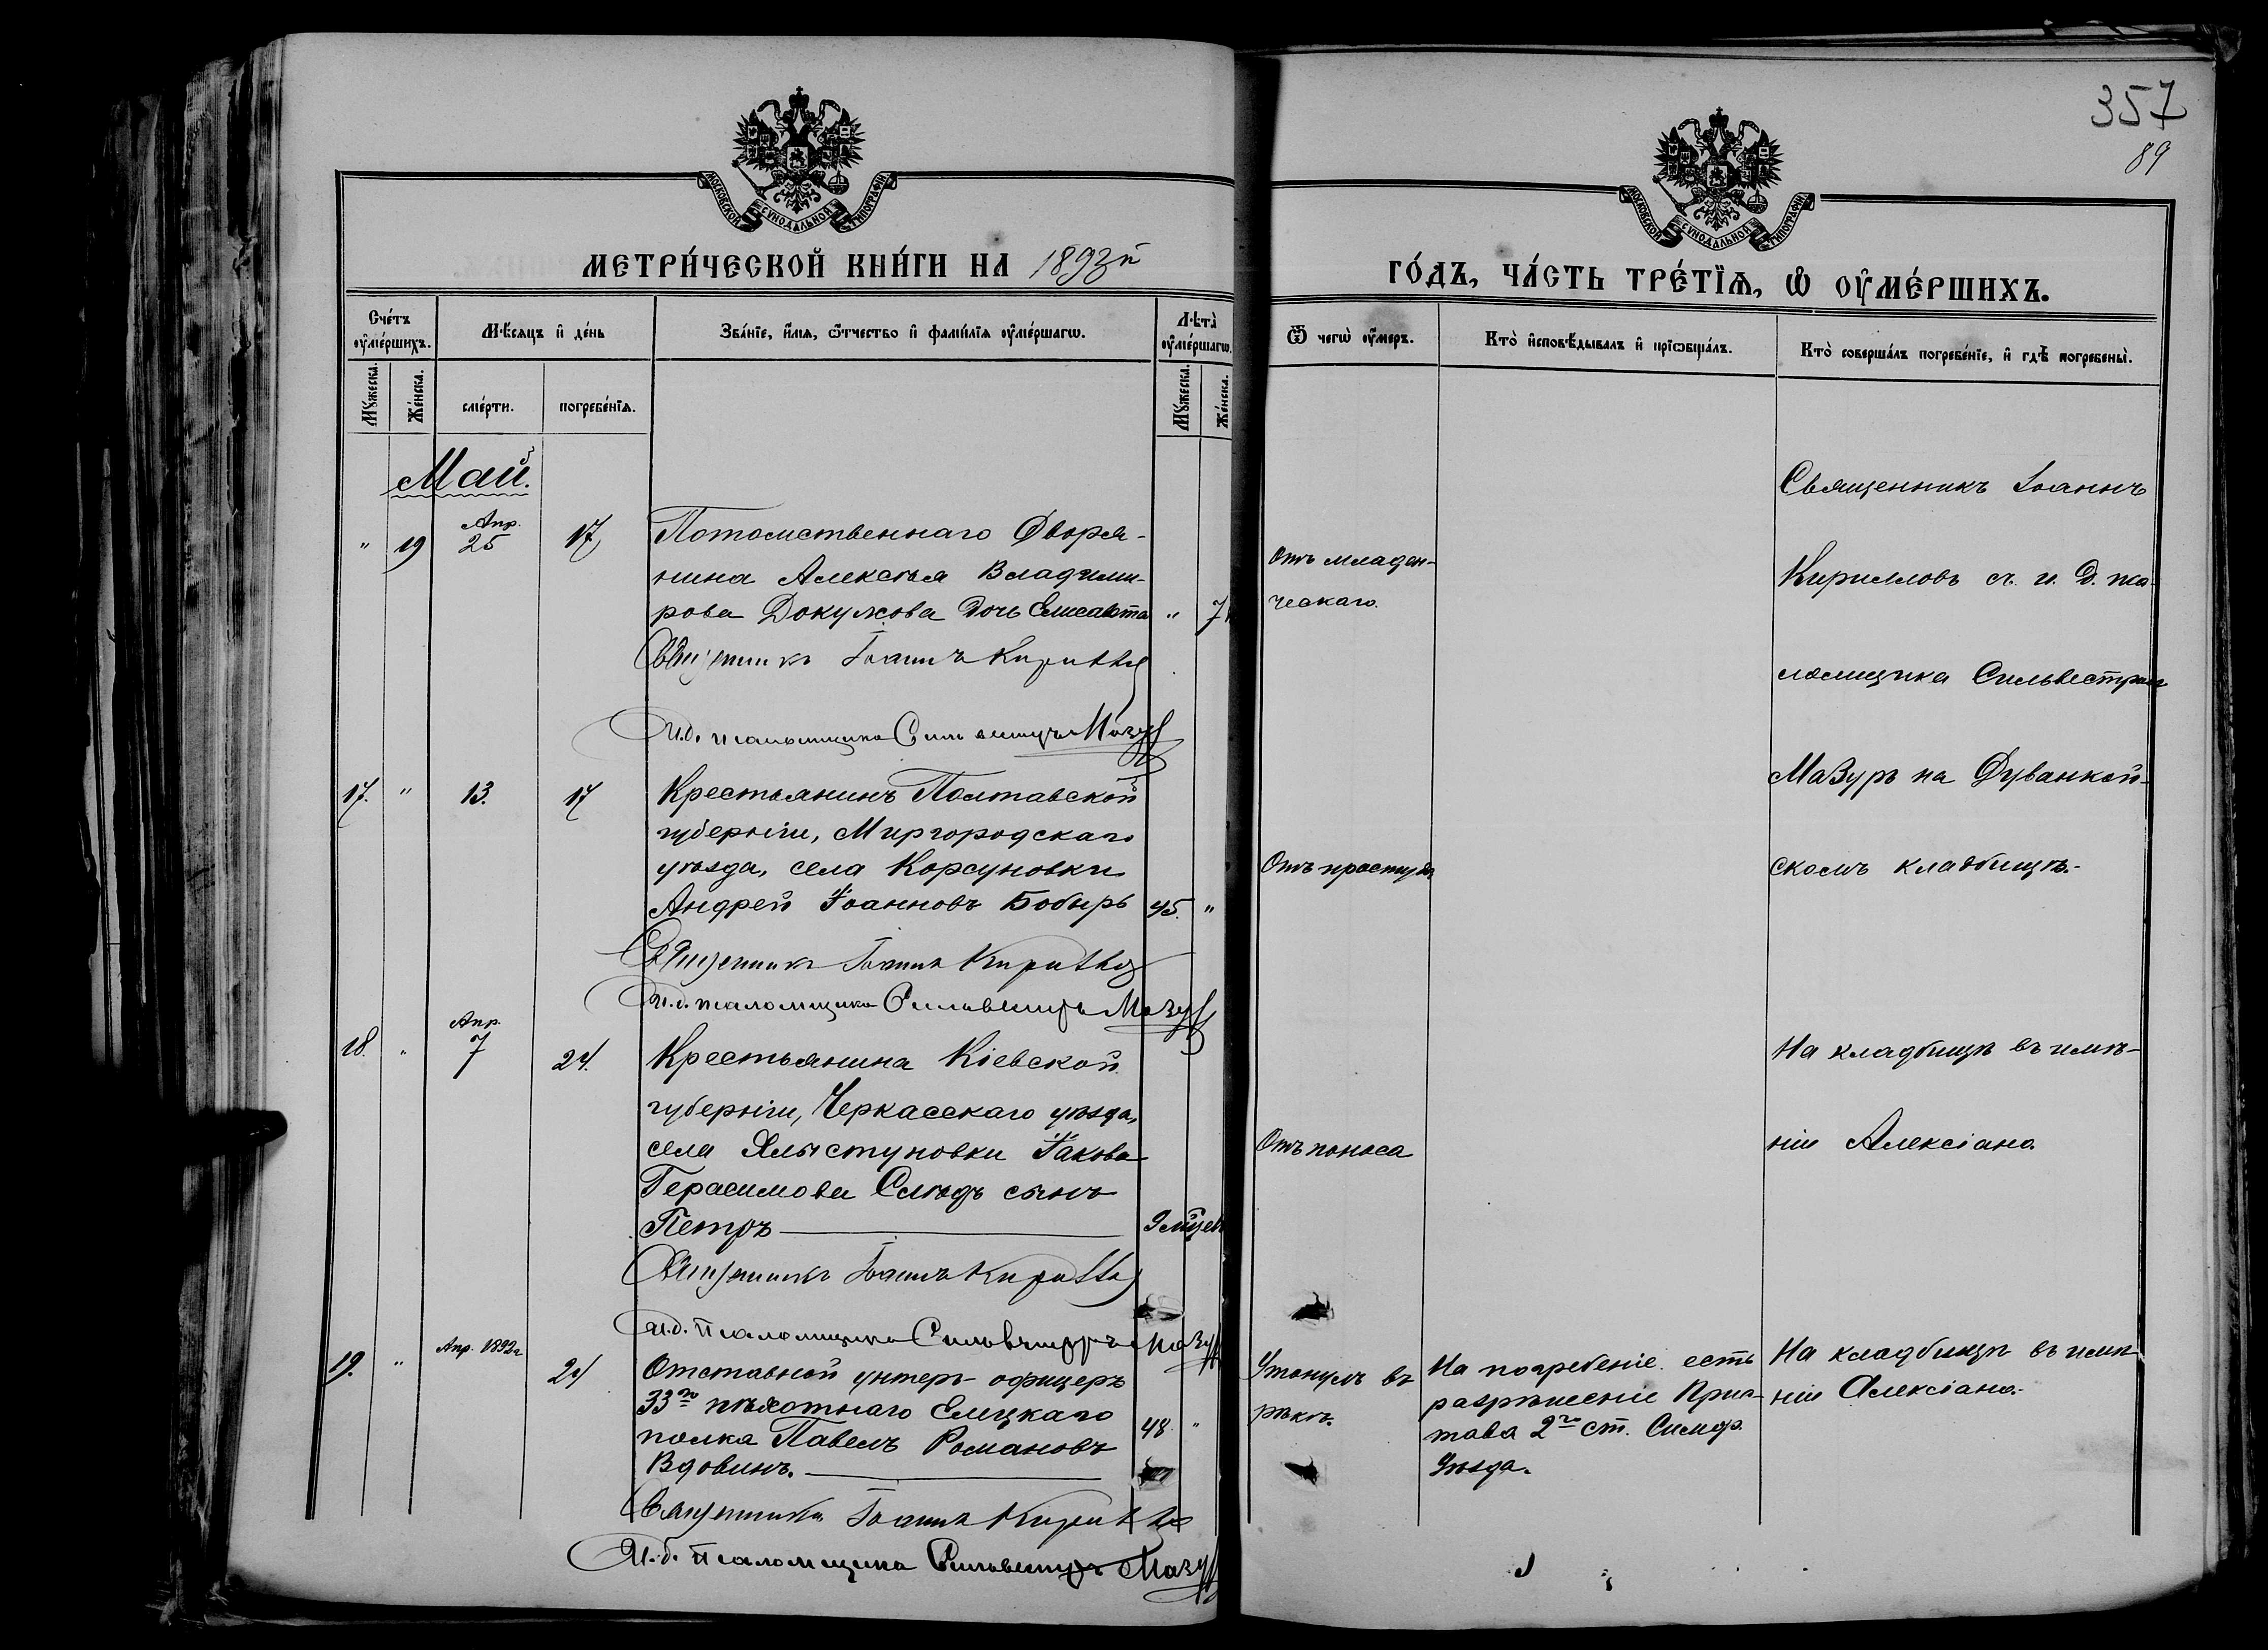 357
89
МОСКОВСКОЙ СѴНОДАЛЬНОЙ ТИПОГРАФІИ
МОСКОВСКОЙ СѴНОДАЛЬНОЙ ТИПОГРАФІИ
МЕТРИ́ЧЕСКОЙ КНИ́ГИ НА 1893й
ГО́ДЪ, ЧА́СТЬ ТРЕ́ТЇѦ, Ѡ ОУ҆МЕ́РШИХЪ.
Сче́тъ оу҆ме́ршихъ.
Мѣ́сяцъ и҆ де́нь
Зва́нїе, и҆́мя, ѿтчество и҆ фами́лїя оу҆ме́ршагѡ.
Лѣта̀ оу҆ме́ршагѡ.
Ѿ чегѡ̀ оу҆́меръ.
Кто̀ и҆сповѣ́дывалъ и҆ прїѡбща́лъ.
Кто̀ соверша́лъ погребе́нїе, и҆ гдѣ̀ погребены̀.
Мꙋ́жеска.
Же́нска.
сме́рти.
погребе́нїя.
Мꙋ́жеска.
Же́нска.
Май.
" 19 Апр. 25 17
Потомственнаго Дворя-
нина Алексѣя Владими-
рова Докужова дочь Елисавета " 7
Священникъ Іоаннъ Кирилловъ
И.д. псаломщика Сильвестръ Мазуръ
Отъ младен-
ческаго.
Священникъ Іоаннъ
Кирилловъ съ и. д. пса-
ломщика Сильвестромъ
Мазуръ на Дуванкой-
скомъ кладбищѣ.-
17. " 13. 17
Крестьянинъ Полтавской
губерніи, Миргородскаго
уѣзда, села Корсуновки
Андрей Іоанновъ Бобырь 45. "
Священникъ Іоаннъ Кирилловъ
И.д. псаломщика Сильвестръ Мазуръ
Отъ простуды
18. " Апр. 7 24.
Крестьянина Кіевской
губерніи, Черкасскаго уѣзда,
села Ялыстуновки Іакова
Герасимова Слѣдъ сынъ
Петръ
Священникъ Іоаннъ Кирилловъ
И.д. псаломщика Сильвестръ Мазуръ
Отъ поноса
На кладбищѣ въ имѣ-
ніи Алексіано.
19. " Апр. 1892г. 24
Отставной унтеръ-офицеръ
33го пѣхотнаго Елецкаго
полка Павелъ Романовъ 48. "
Вдовинъ.
Священникъ Іоаннъ Кирилловъ
И.д. псаломщика Сильвестръ Мазуръ
Утонулъ въ
рѣкѣ.
На погребеніе есть
разрѣшеніе Прис-
тава 2го ст. Симф.
Уѣзда.
На кладбищѣ въ имѣ-
ніи Алексіано.-